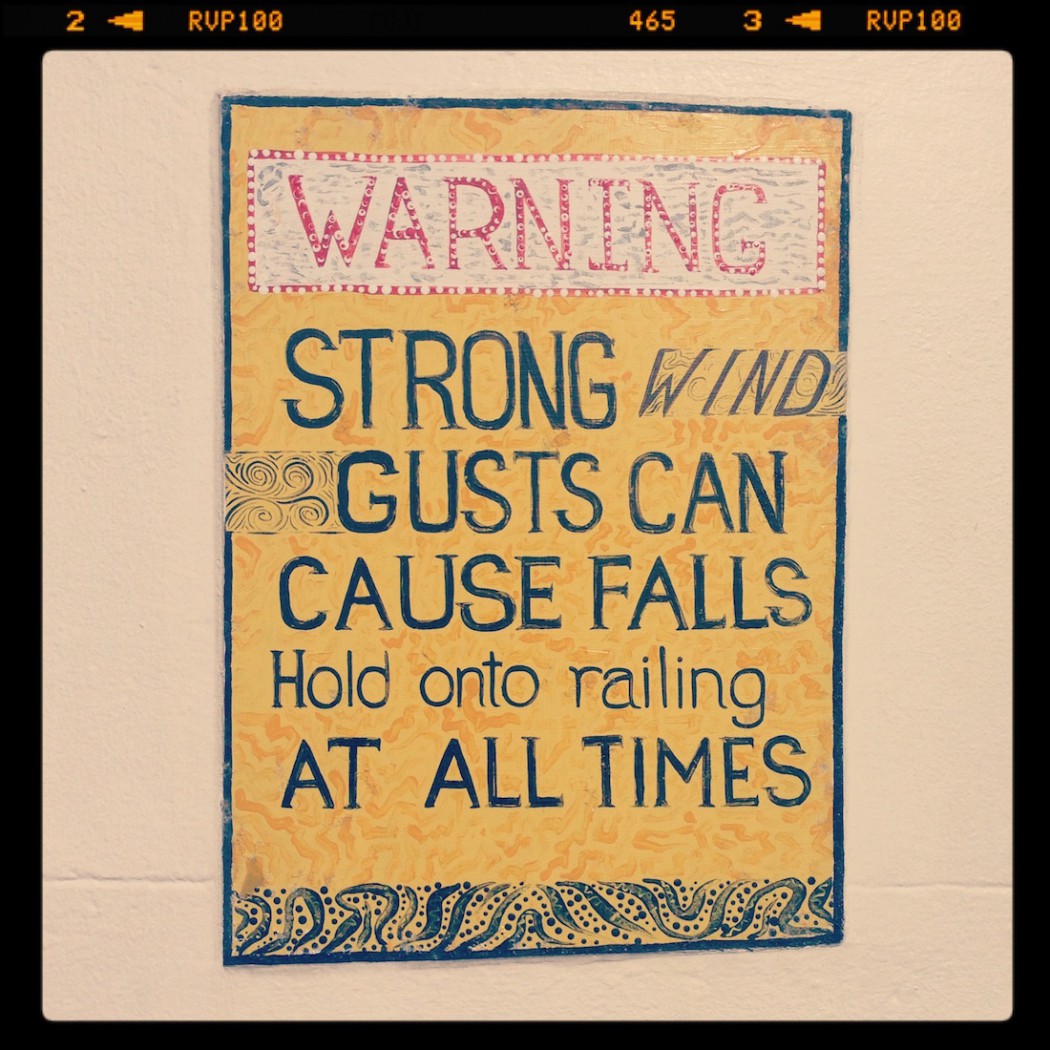 2 RVP100 465 3 RVP100
WARNING
STRONG WIND
GUSTS CAN
CAUSE FALLS
Hold onto railing
AT ALL TIMES